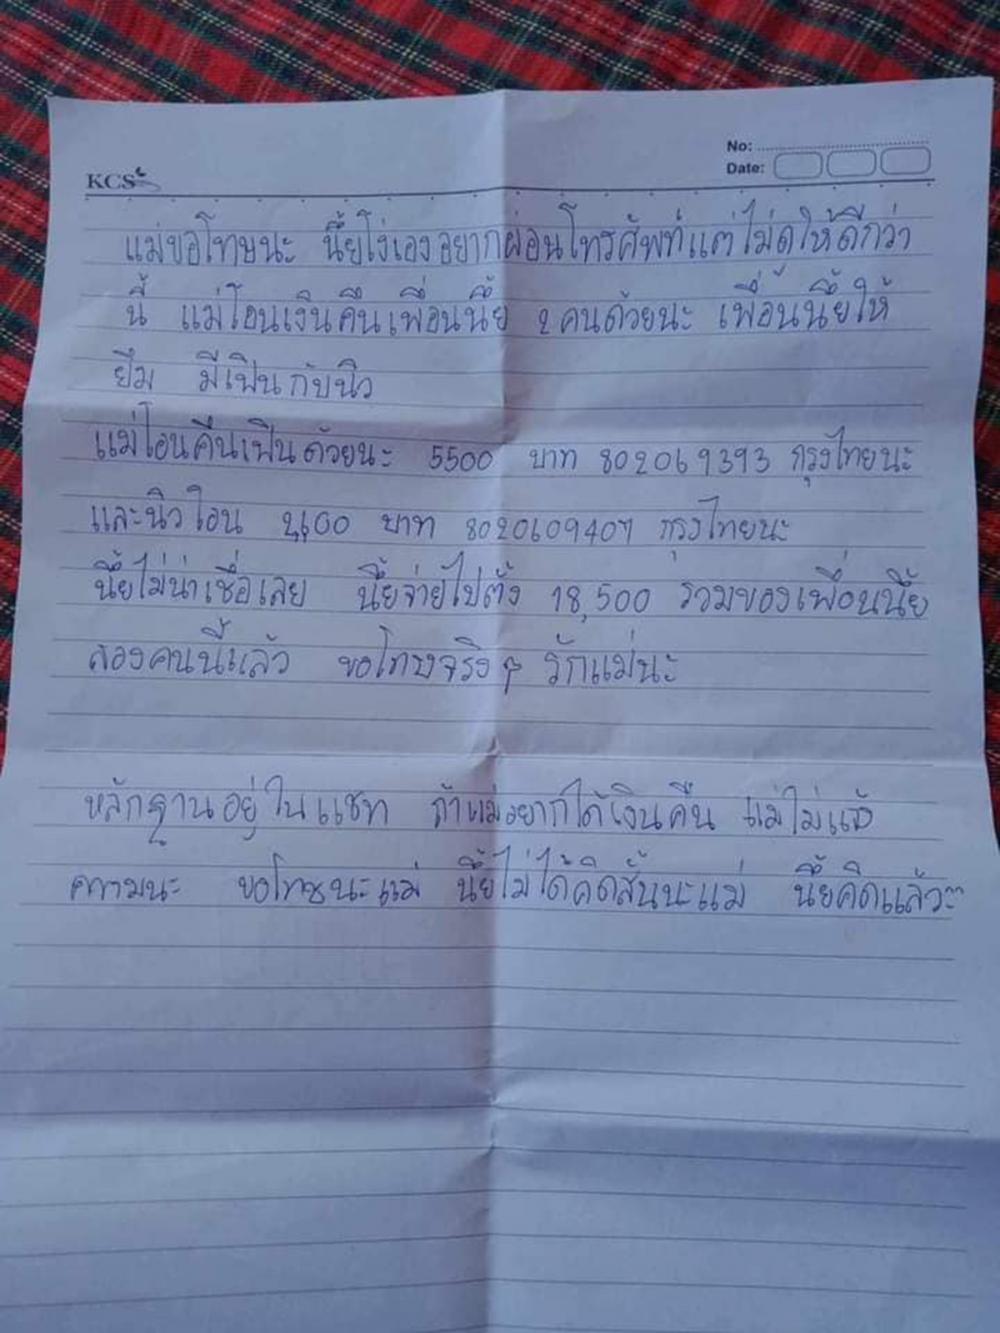 No:
Date:
KCS
แม่ขอโทษนะ นี้ยโง่เองอยากผ่อนโทรศัพท์แต่ไม่ดูให้ดีกว่า
นี้ แม่โอนเงินคืนเพื่อนนี้ย 2 คนด้วยนะ เพื่อนนี้ยให้
ยืม มีเฟินกับนิว
แม่โอนคืนเฟินด้วยนะ 5500 บาท 802069393 กรุงไทยนะ
และนิวโอน บาท กรุงไทยนะ
นี้ยไม่น่าเชื่อเลย นี้ยจ่ายไปตั้ง 18,500 รวมของเพื่อนนี้ย
สองคนนี้แล้ว ขอโทษจริงๆ รักแม่นะ
หลักฐานอยู่ในแชท ถ้าแม่อยากได้เงินคืน แม่ไปแจ้
ความนะ ขอโทษนะแม่ นี้ยไม่ได้คิดสั้นนะแม่ นี้ยคิดแล้ว